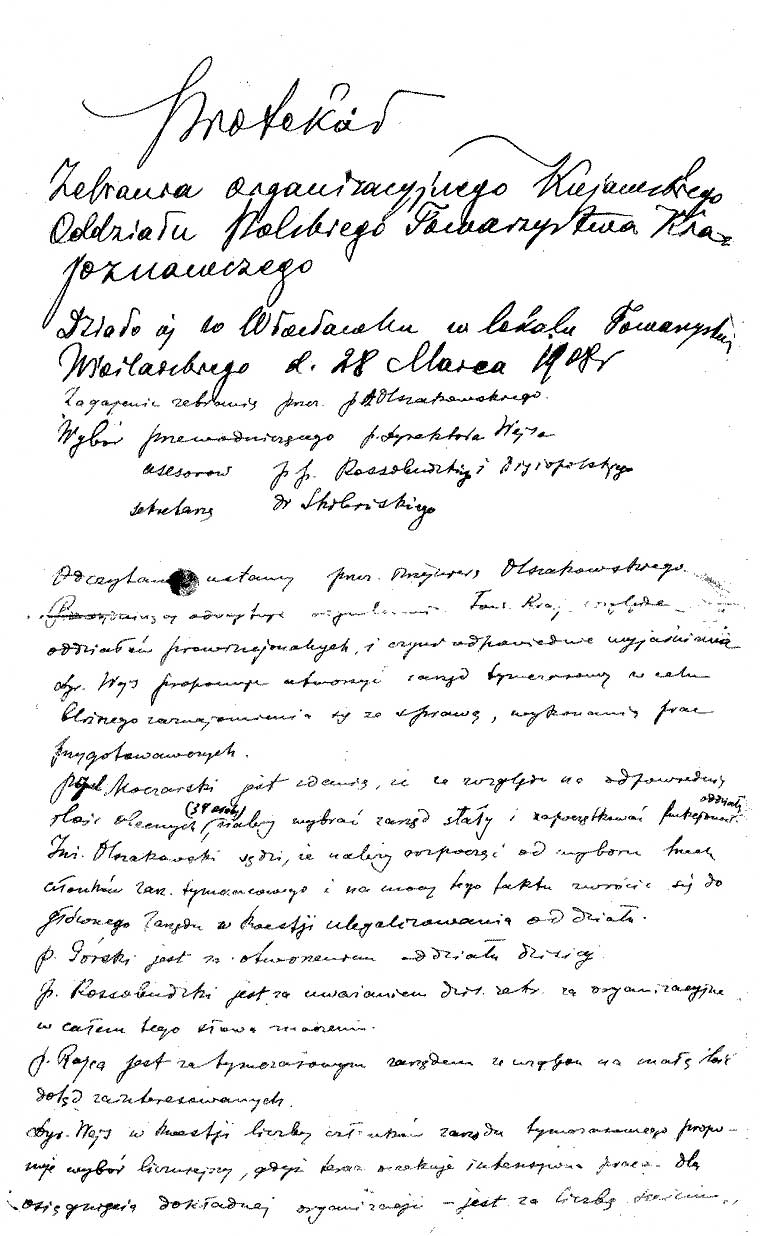 Protokół
Zebrania organizacyjnego Kujawskiego
Oddziału Polskiego Towarzystwa Kra-
joznawczego
Działo się we Włocławku w lokalu Towarzystwa
Wioślarskiego d. 28 Marca 1908 r
Zagajenie zebrania przez p. Olszakowskiego.
Wybór przewodniczącego p. dyrektora Wejsa
asesorów p.p. Kossobudzkiego i
sekretarza dr
Odczytanie ustawy przez Inżyniera Olszakowskiego.
Tow. Kraj. względem
oddziałów prowincjonalnych, i czyni odpowiednie wyjaśnienia
dyr. Wejs proponuje utworzyć zarząd tymczasowy w celu
bliższego zaznajomienia się ze sprawą, wykonania prac
przygotowawczych.
Moczarski jest zdania, że ze względu na odpowiednią
ilość obecnych (34 osoby) należy wybrać zarząd stały i zapoczątkować funkcjonow. oddziału
Inż. Olszakowski sądzi, że należy rozpocząć od wyboru trzech
członków zarz. tymczasowego i na mocy tego faktu zwrócić się do
głównego Zarządu w kwestji ulegalizowania oddziału.
p. Górski jest za otworzeniem oddziału dzisiaj.
p. Kossobudzki jest za uważaniem dzis. zebr. za organizacyjne
w całem tego słowa znaczeniu.
p. Rajca jest za tymczasowym zarządem ze względu na małą ilość
dotąd zainteresowanych.
Dyr. Wejs w kwestji liczby członków zarządu tymczasowego propo-
nuje wybór liczniejszy, gdyż teraz oczekuje intensywna praca dla
osiągnięcia dokładnej organizacji – jest za liczbą